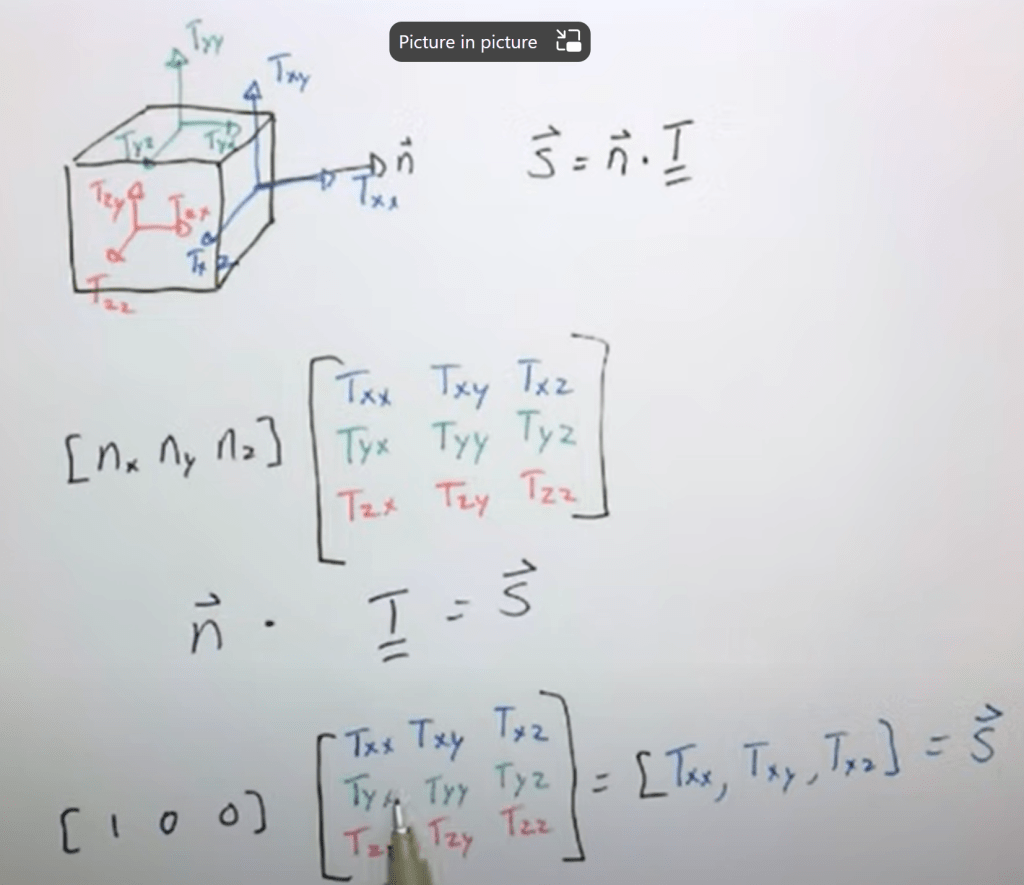 Picture in picture
Tyy
Txy
n⃗
Tyz
Txx
Tzy
Tzx
Txz
Tzz
S⃗ = n⃗ · T
[nx ny nz] [Txx Txy Txz
Tyx Tyy Tyz
Tzx Tzy Tzz]
n⃗ · T = S⃗
[1 0 0] [Txx Txy Txz
Ty Tyy Tyz
Tz Tzy Tzz] = [Txx, Txy, Txz] = S⃗